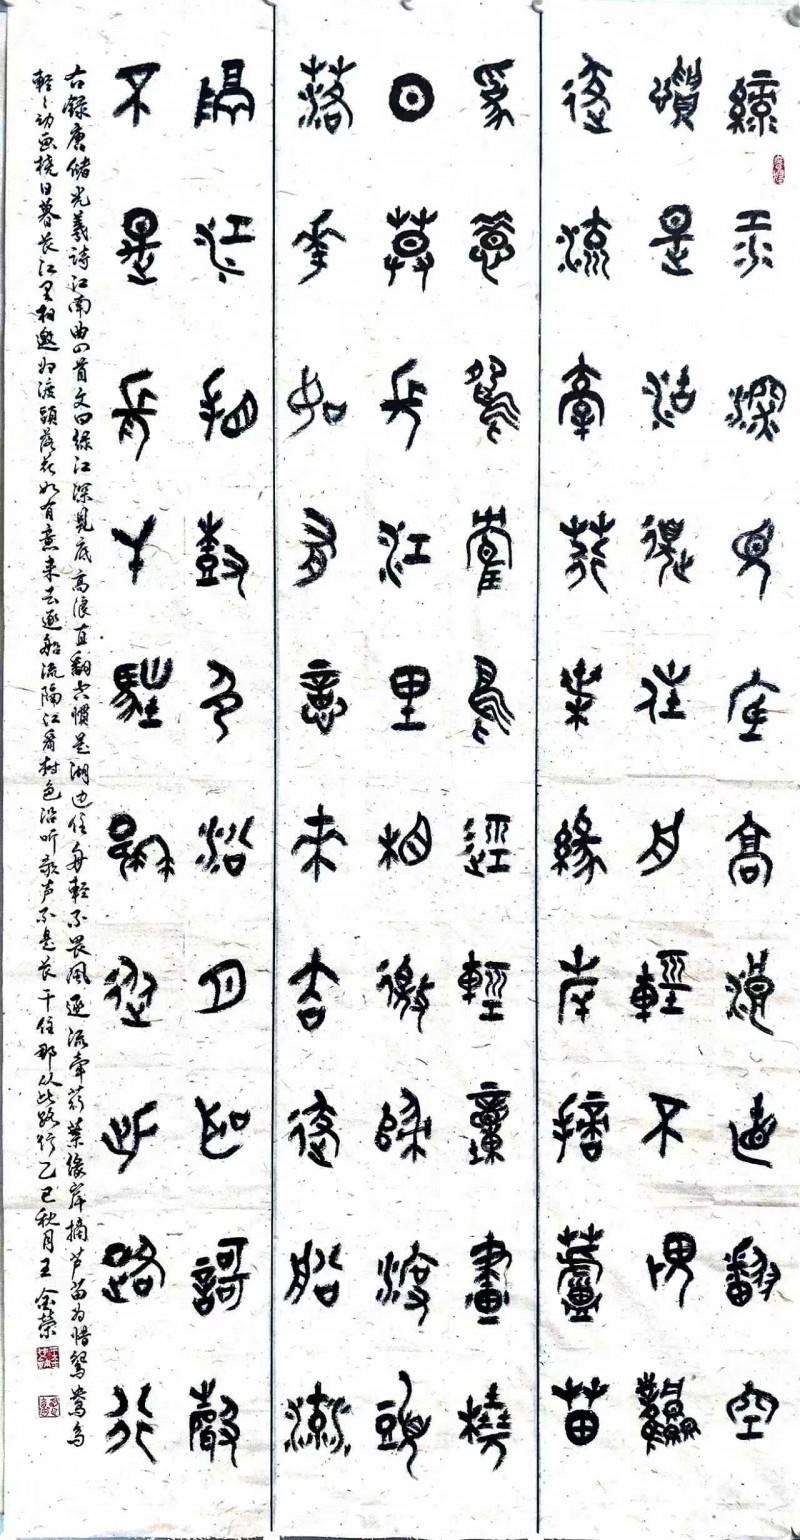 綠江深見底高浪直翻空
慣是湖邊住舟輕不畏風
逐流牽荇葉緣岸摘蘆苗
為惜鴛鴦鳥輕輕動畫橈
日暮長江里相邀歸渡頭
落花如有意來去逐船流
隔江看樹色沿月聽歌聲
不是長干住那從此路行
右錄唐儲光羲詩江南曲四首文曰綠江深見底高浪直翻空慣是湖边住舟輕不畏風逐流牽荇葉緣岸摘芦苗为惜鴛鴦鳥
輕々动画橈日暮長江里相邀归渡頭落花如有意来去逐船流隔江看树色沿听歌声不是長干住那从此路行乙巳秋月王金榮